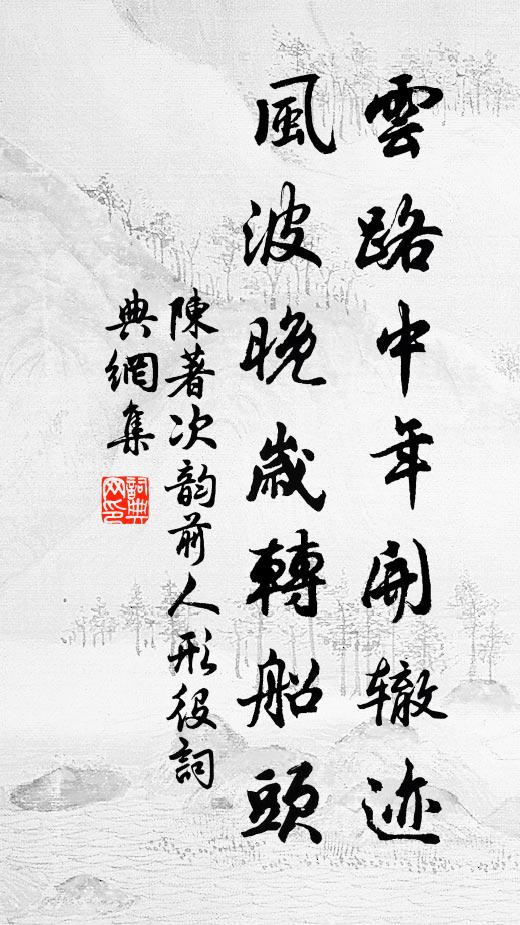 雲路中年開辙迹
風波晚歲轉船頭
陳著次韵前人形役詞
典網集
詞典网印